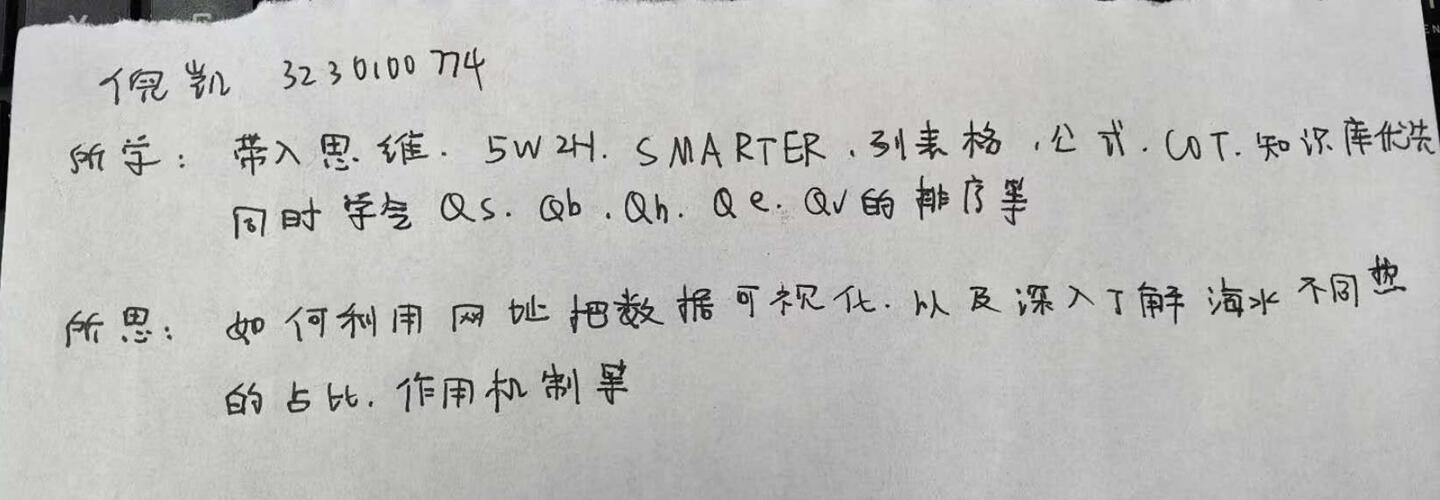 倪凯 3230100774
所学：带入思维．5W2H．SMARTER．列表格．公式．COT．知识库优先
同时学会Qs．Qb．Qh．Qe．Qv的排序等
所思：如何利用网址把数据可视化．以及深入了解海水不同热
的占比．作用机制等